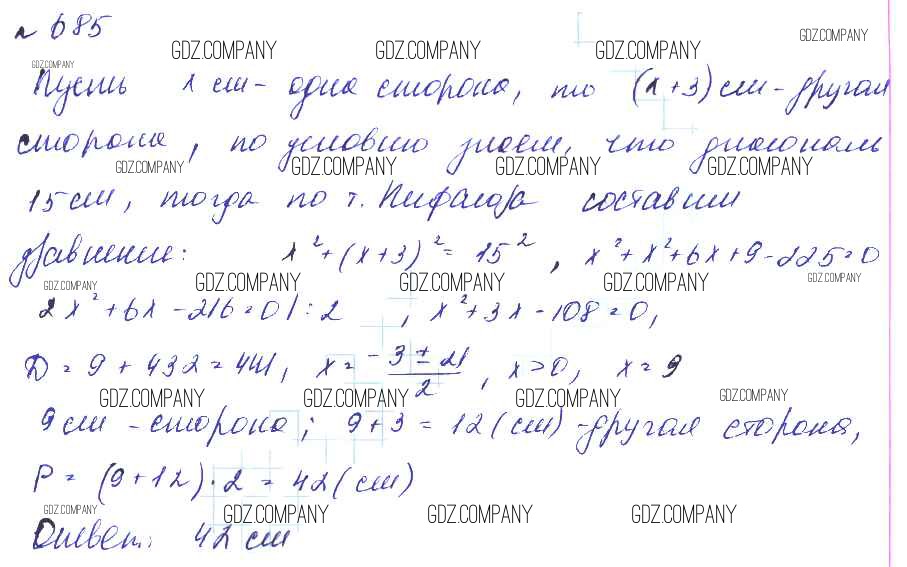 № 685
GDZ.COMPANY GDZ.COMPANY GDZ.COMPANY GDZ.COMPANY
GDZ.COMPANY
Пусть x см - одна сторона, то (x+3) см - другая
сторона, по условию знаем, что диагональ
GDZ.COMPANY GDZ.COMPANY GDZ.COMPANY GDZ.COMPANY
15 см, тогда по т. Пифагора составим
уравнение: x² + (x+3)² = 15², x² + x² + 6x + 9 - 225 = 0
GDZ.COMPANY GDZ.COMPANY GDZ.COMPANY GDZ.COMPANY GDZ.COMPANY
2x² + 6x - 216 = 0 | : 2 , x² + 3x - 108 = 0,
D = 9 + 432 = 441, x = (-3 ± 21)/2, x > 0, x = 9
GDZ.COMPANY GDZ.COMPANY GDZ.COMPANY GDZ.COMPANY
9 см - сторона; 9 + 3 = 12 (см) - другая сторона,
P = (9 + 12) · 2 = 42 (см)
GDZ.COMPANY GDZ.COMPANY GDZ.COMPANY GDZ.COMPANY
Ответ: 42 см